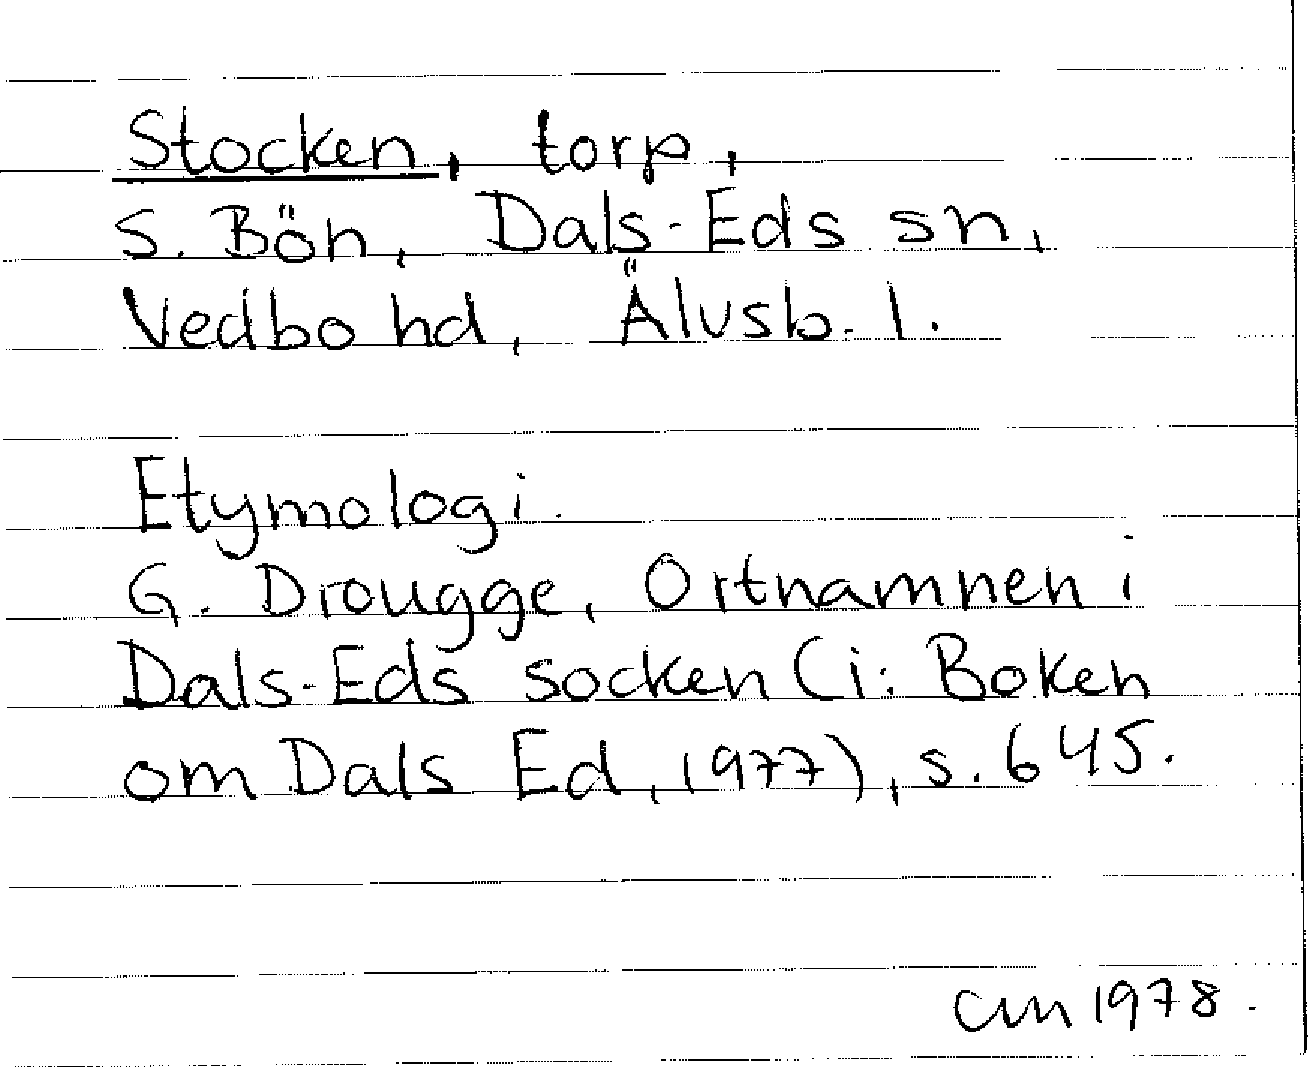 Stocken, torp,
S. Bön, Dals-Eds sn,
Vedbo hd, Älvsb. l.
Etymologi.
G. Drougge, Ortnamnen i
Dals-Eds socken (i: Boken
om Dals Ed, 1977), s. 645.
1978.